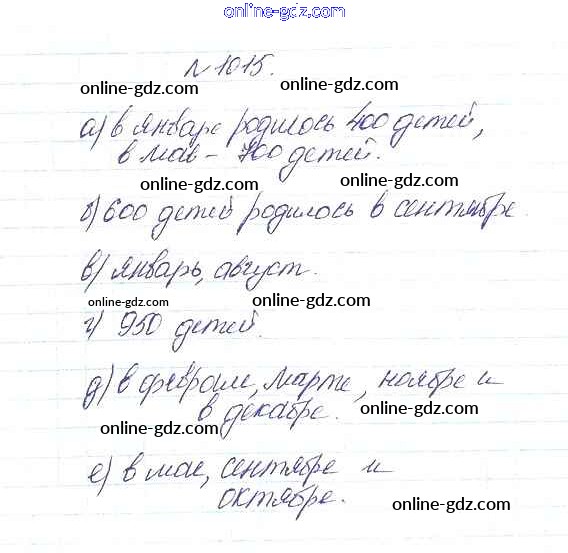 online-gdz.com
№1015.
online-gdz.com online-gdz.com
а) в январе родилось 400 детей,
в мае - 700 детей.
online-gdz.com online-gdz.com
б) 600 детей родилось в сентябре.
online-gdz.com online-gdz.com
в) январь, август.
online-gdz.com online-gdz.com
г) 950 детей.
online-gdz.com
д) в феврале, марте, ноябре и
в декабре. online-gdz.com
online-gdz.com
е) в мае, сентябре и
октябре. online-gdz.com